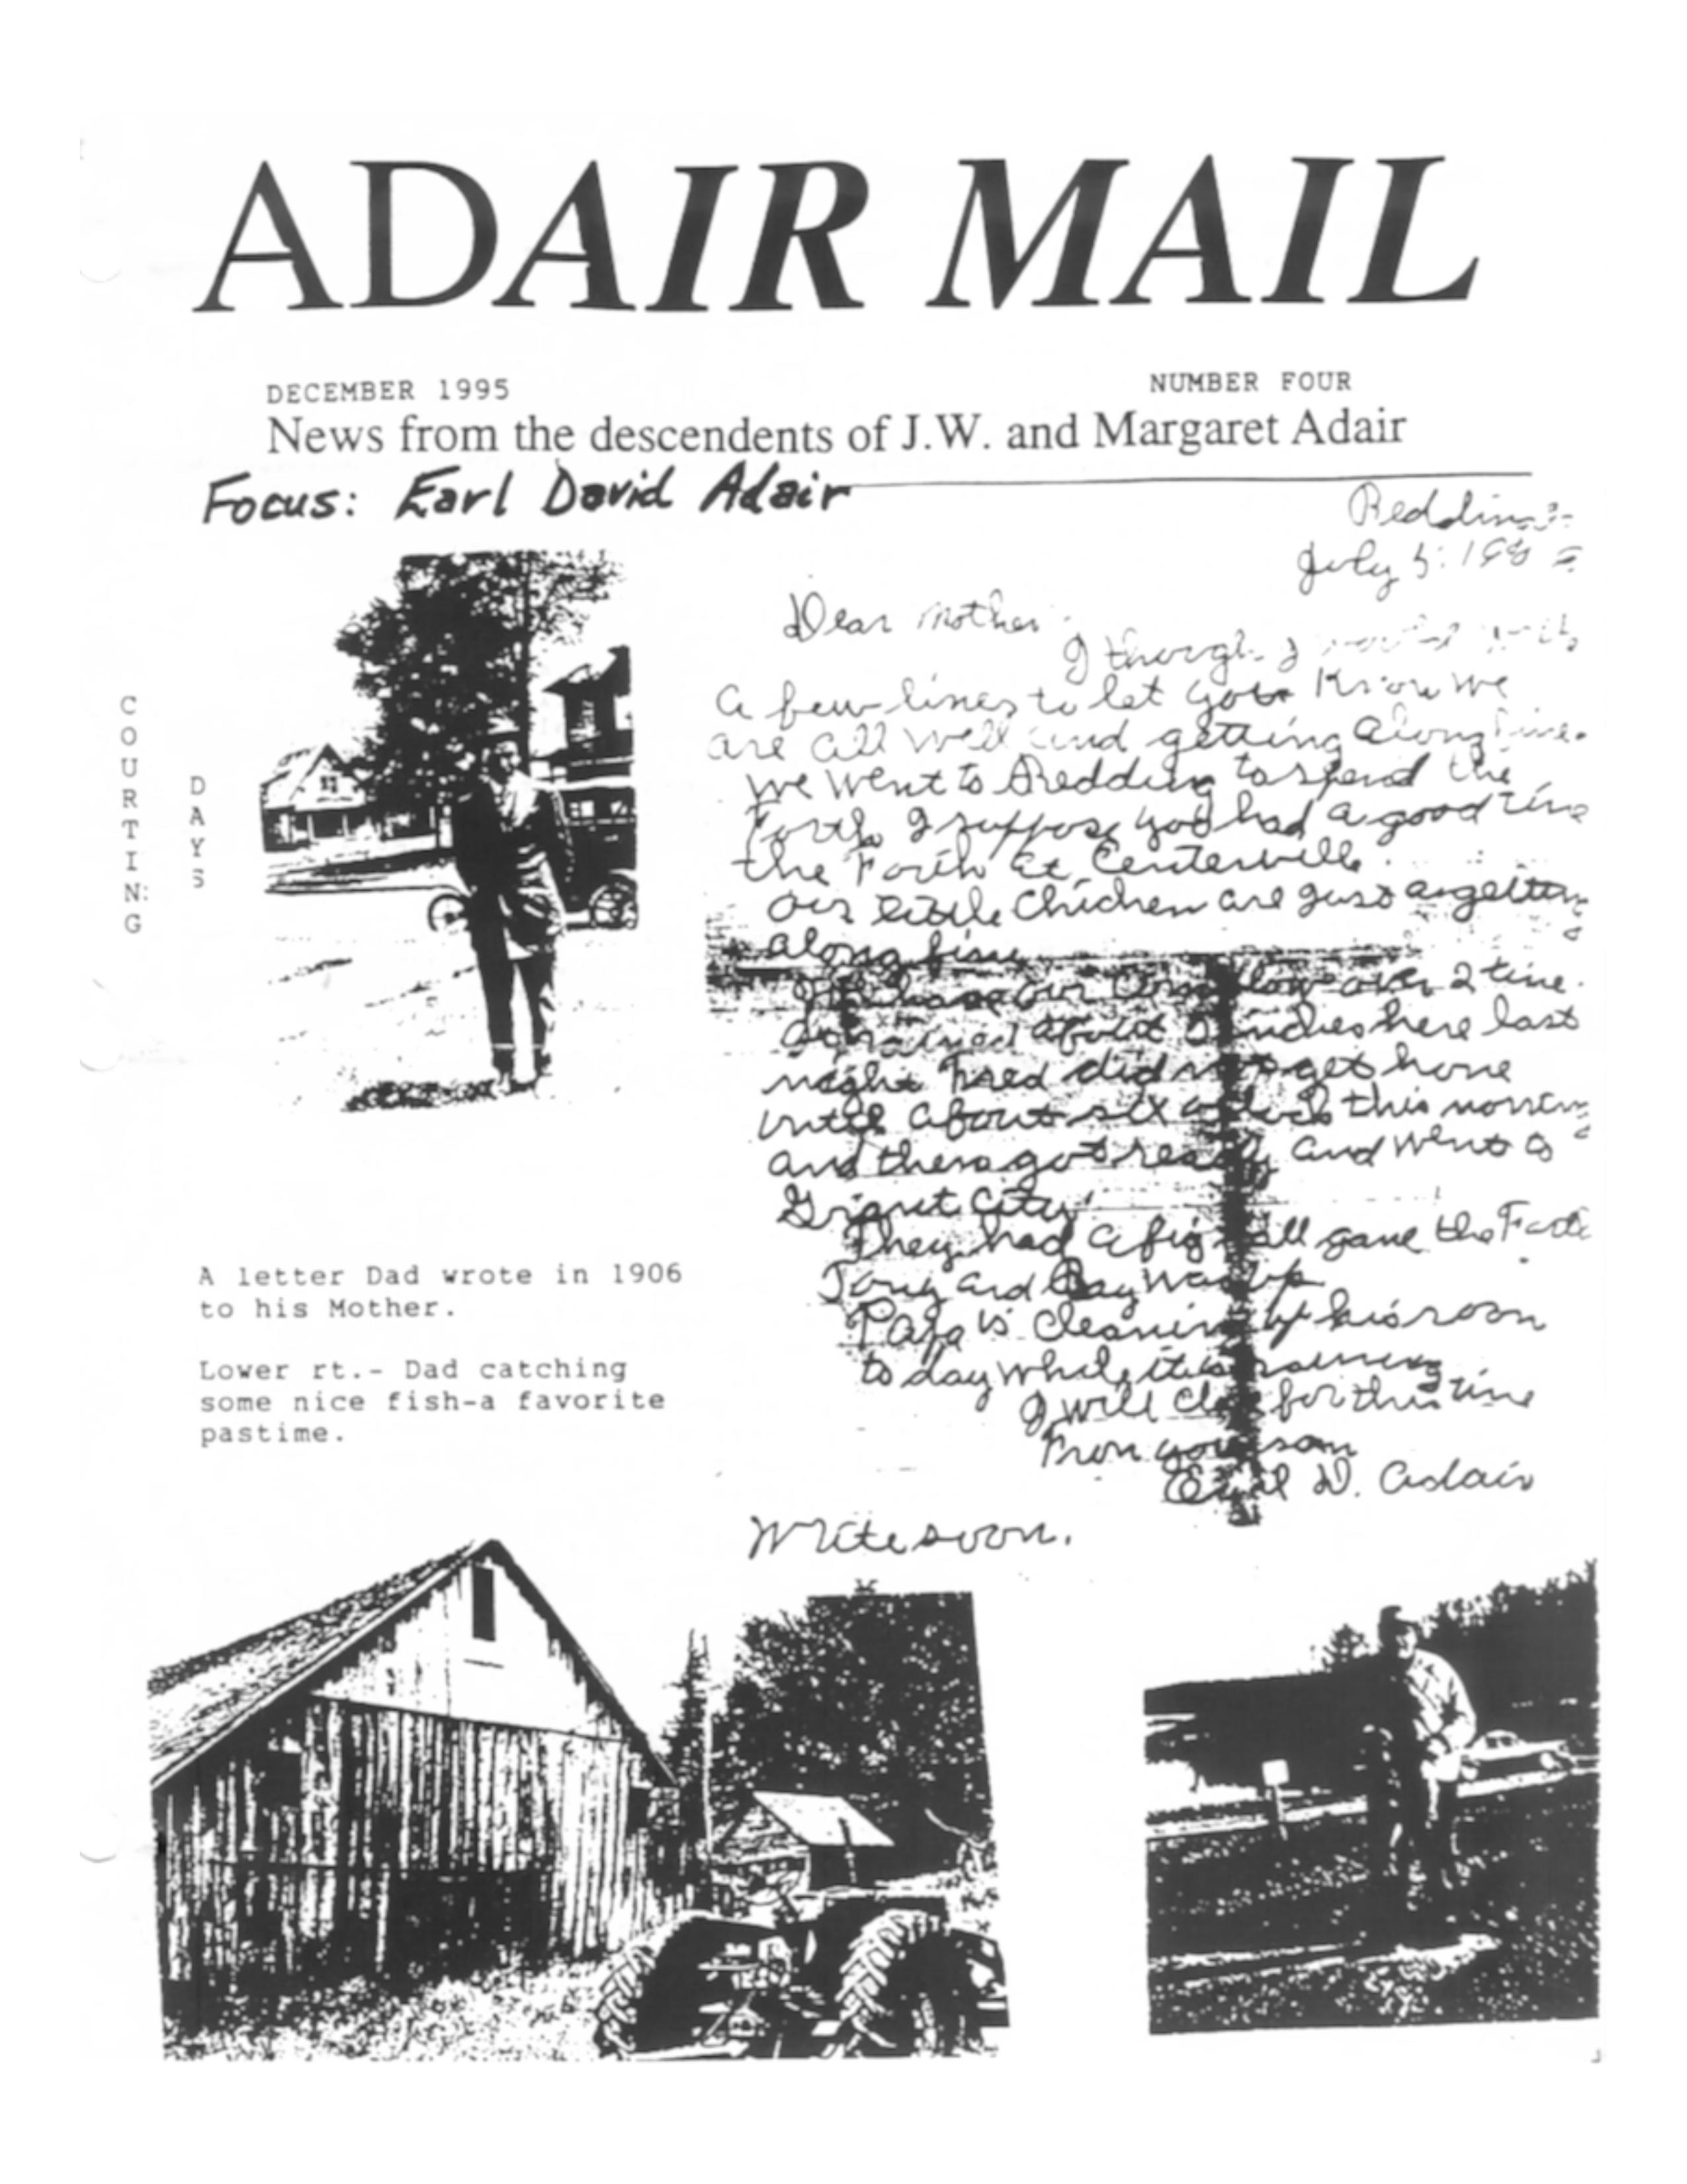 ADAIR MAIL
DECEMBER 1995
NUMBER FOUR
News from the descendents of J.W. and Margaret Adair
Focus: Earl David Adair
COURTING
DAYS
A letter Dad wrote in 1906
to his Mother.
Lower rt.- Dad catching
some nice fish-a favorite
pastime.
Redding
July 5:
Dear Mother
I though I
a few lines to let you Know we
are all well and getting along fine.
we went to Redding to spend the
Forth I suppose you had a good time
the Forth at Centerville.
our little chicken are just agetting
along fine
our corn over 2 time.
rained about 2 inches here last
night Fred did not get home
until about six this morning
and then got ready and went to
Grant City
They had a big ball game the
Tony and Ray
Papa is cleaning up his room
to day while it is raining
I will close for this time
From your son
Earl D. Adair
Write soon.